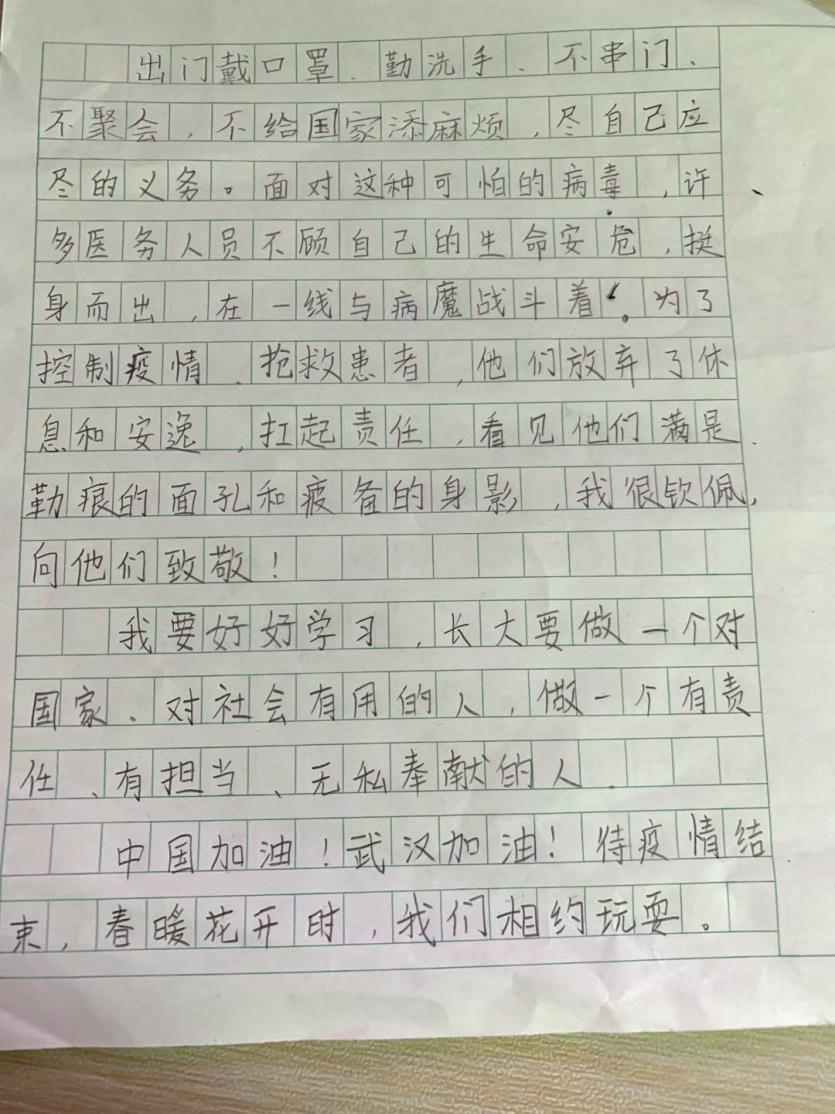 出门戴口罩、勤洗手、不串门、
不聚会，不给国家添麻烦，尽自己应
尽的义务。面对这种可怕的病毒，许
多医务人员不顾自己的生命安危，挺
身而出，在一线与病魔战斗着。为了
控制疫情、抢救患者，他们放弃了休
息和安逸，扛起责任，看见他们满是
勒痕的面孔和疲备的身影，我很钦佩，
向他们致敬！
我要好好学习，长大要做一个对
国家、对社会有用的人，做一个有责
任、有担当、无私奉献的人.
中国加油！武汉加油！待疫情结
束，春暖花开时，我们相约玩耍。